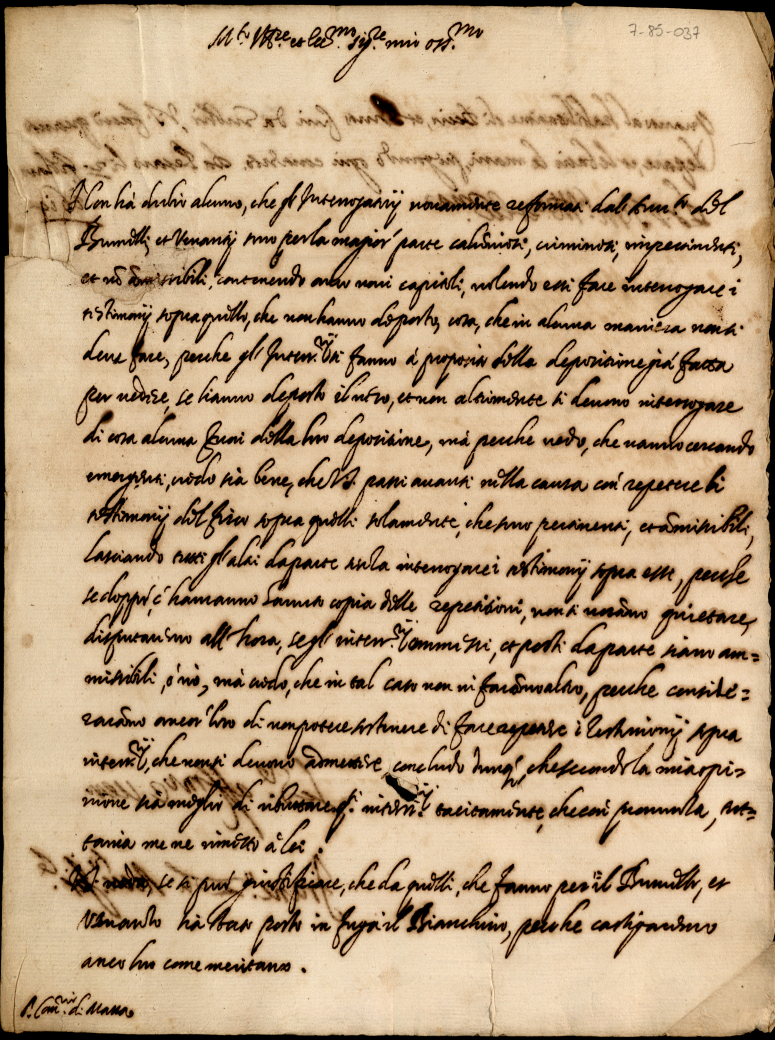 7-85-037
M.to Ill.re et Ecc.mo Sig.re mio oss.mo
Non hà dubio alcuno, che gl'Interrogatorij novamente reformati dal del
Brunetti, et Venantij sono per la maggior parte caluniosi, criminosi, impertinenti,
et nõ amissibili, contenendo anco novi capitoli, volendo essi fare interrogare i
testimonij sopra quello, che non hanno deposto, cosa, che in alcuna maniera non si
deve fare, perche gl'Inter.rij si fanno à proposito della depositione già fatta
per vedere, se hanno deposto il vero, et non altrimente si devono interrogare
di cosa alcuna fuori della loro depositione, mà perche vedo, che vanno cercando
emergenti, credo sia bene, che V.S. passi avanti nella causa con repetere li
testimonij del fisco sopra quelli solamente, che sono pertinenti, et amissibili,
lasciando tutti gl'altri da parte senza interrogare i testimonij sopra essi, perche
se doppò, c'havranno havuto copia delle repetitioni, non si quietare,
disputaremo all'hora, se gl'inter.rij ommessi, et posti da parte siano am=
missibili, ò nò, mà credo, che in tal caso non ni faranno altro, perche conside=
raranno ancor loro di non potere sostenere di fare repetere i Testimonij sopra
interr.ij, che non si devono admettere, concludo dunq, che secondo la mia opi=
nione sia meglio di ributtare gl'interr.ij tacitamente, che con pronuntia, tut=
tavia me ne rimetto à lei.
se si può giustificare, che da quelli, che fanno per il Brunetto, et
Venantio sia stato posto in fuga il Bianchino, perche castigaremo
anco loro come meritano.
S. Com.rio di Massa